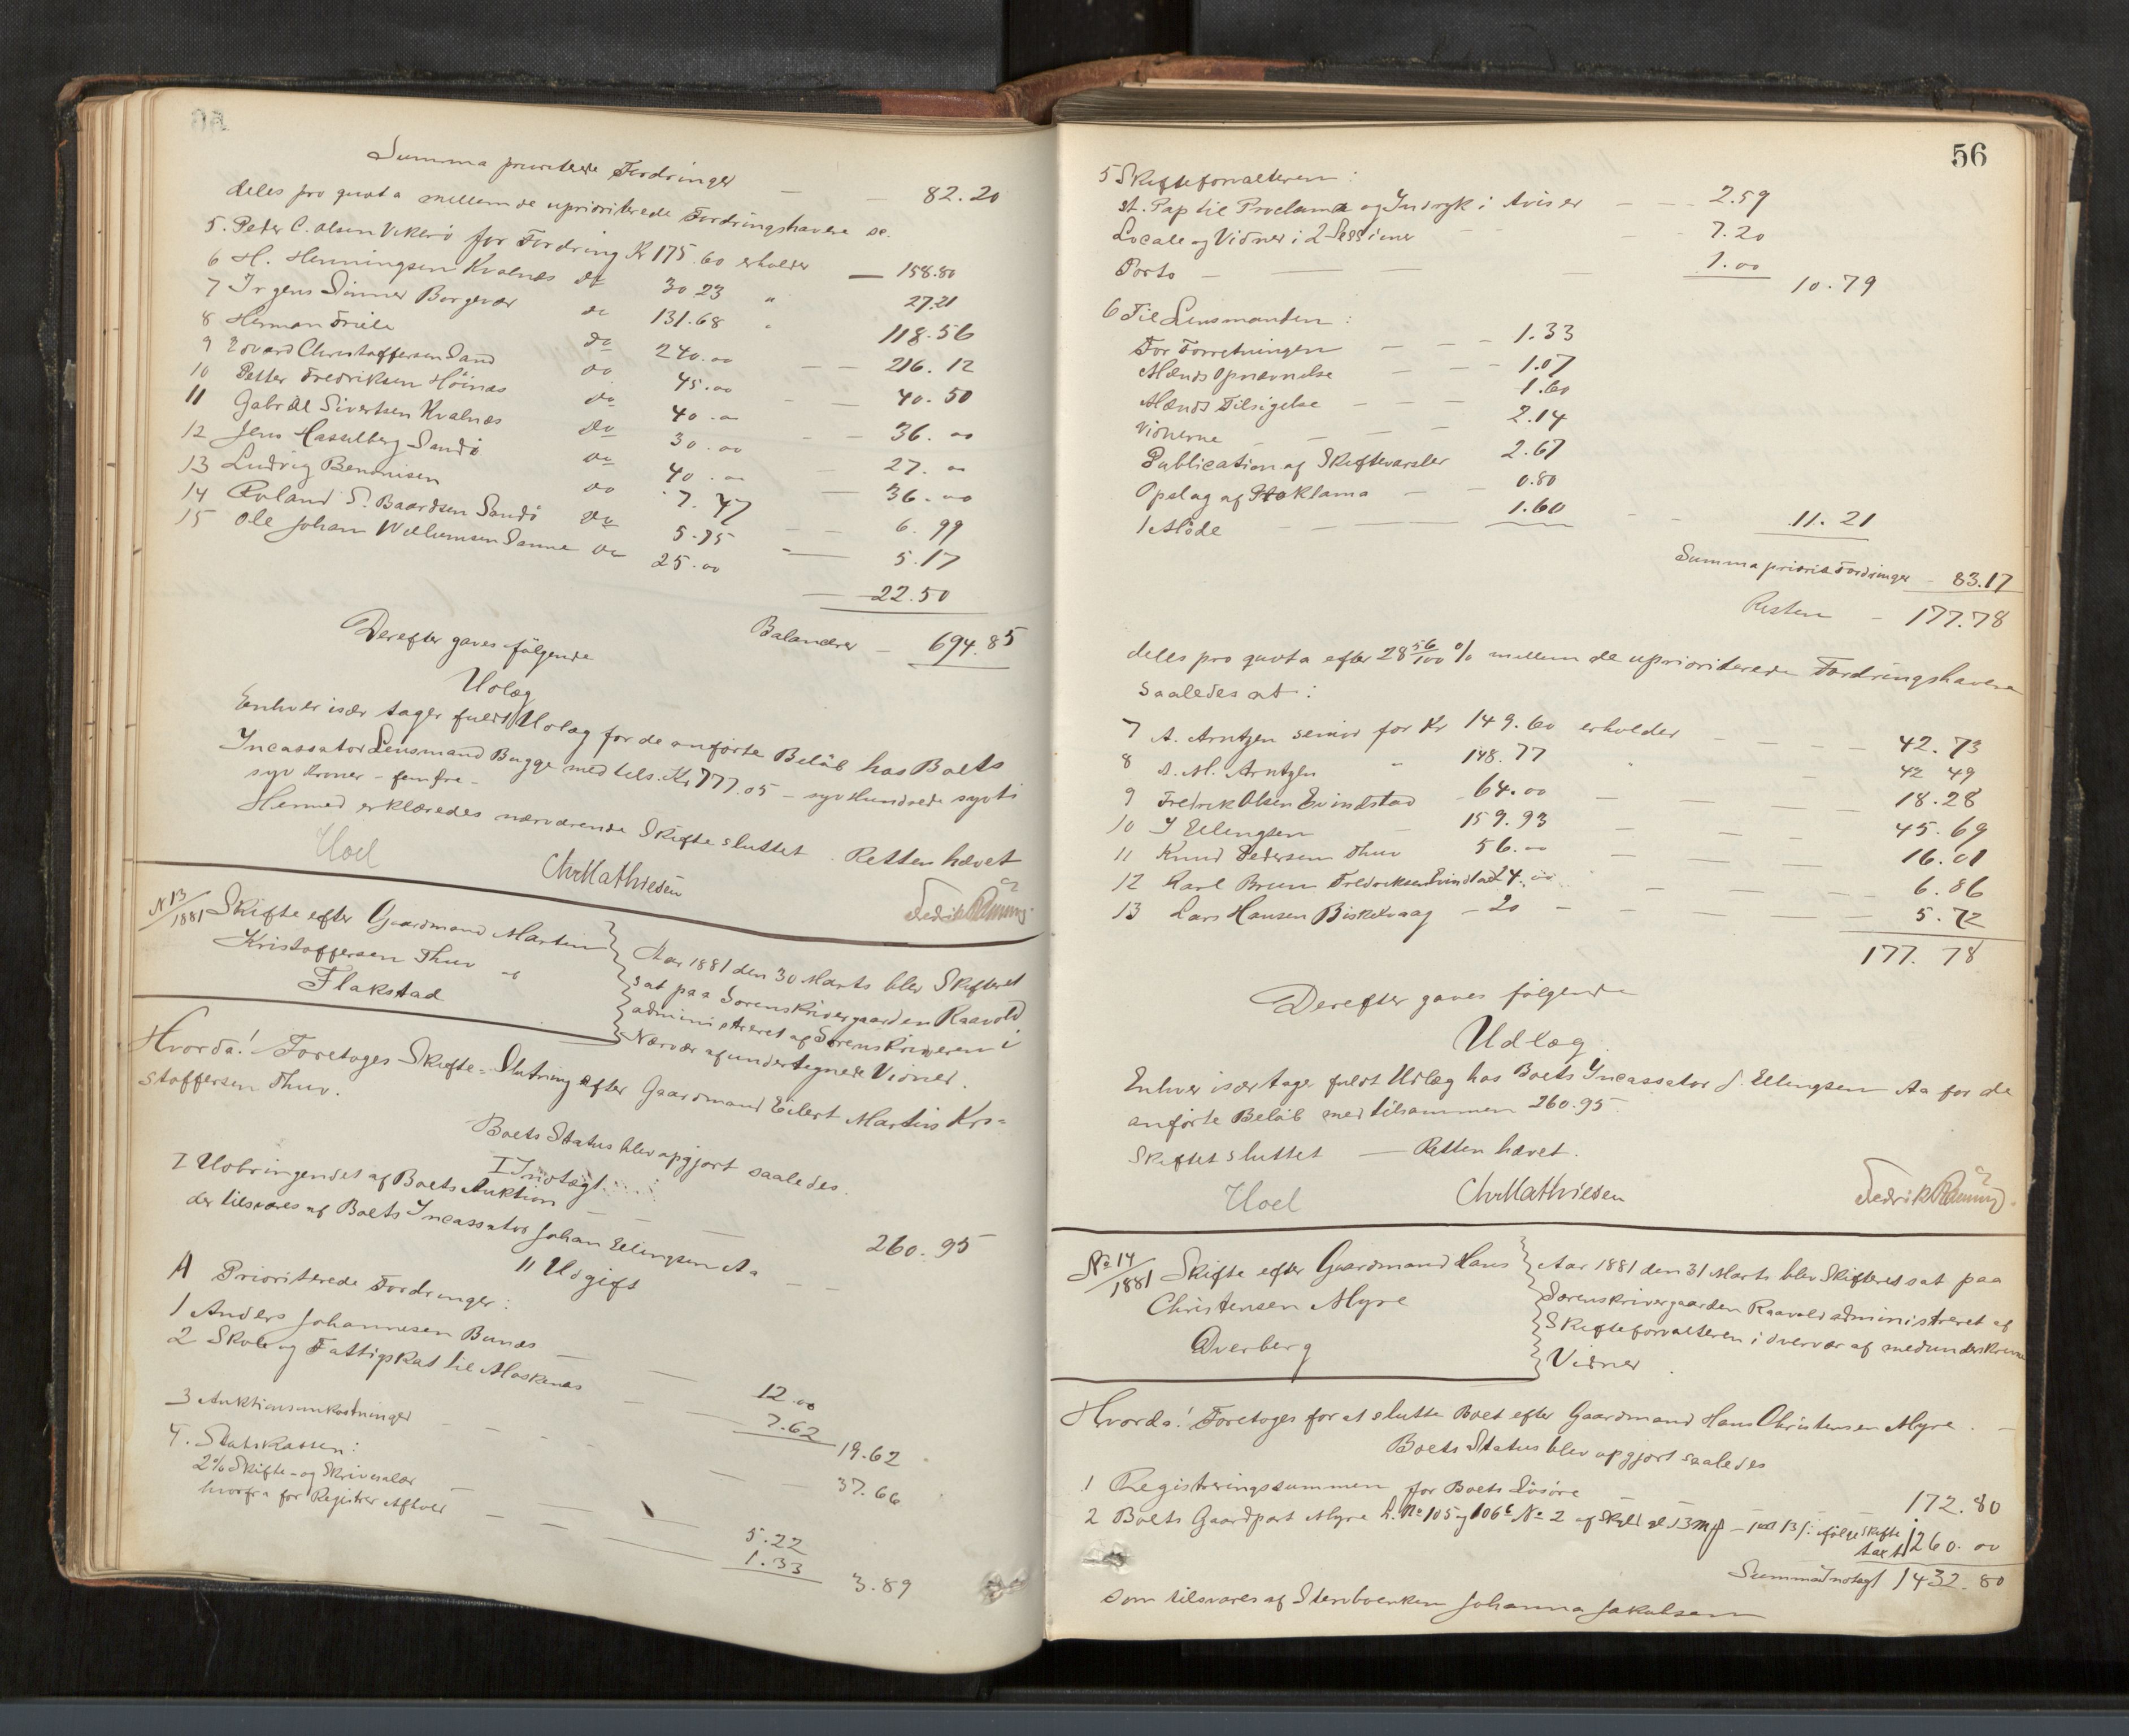 Summa prioriterede Fordringer — 82.20
deles pro quota mellem de uprioriterede Fordringshavere sa.
5. Peder C. Olsen Vikerö for Fordring Kr 175.60 erholder — 158.80
6 H. Henningsen Kvalnæs do 30 23 " 27.21
7 Irgens Sönner Borgevær do 131.68 " 118.56
8 Herman Friele do 240.00 — 216.12
9 Edvard Christoffersen Sand do 45.00 — 40.50
10 Petter Fredriksen Höinæs do 40.00 — 36.00
11 Gabriel Sivertsen Kvalnæs do 30.00 — 27.00
12 Jens Hasselberg Sandö do 40.00 — 36.00
13 Ludvig Benonisen do 7.77 — 6.99
14 Roland S. Baardsen Sandö do 5.75 — 5.17
15 Ole Johan Willumsen Sanne do 25.00 — 22.50
Balancerer — 694.85
Derefter gaves følgende
Udlæg
Enhver især tager fuldt Udlæg for de anførte Beløb hos Boets
Incassator Lensmand Bugge med tils. Kr 777.05 — syv Hundrede sytti
syv Kroner - fem Øre -
Hermed erklæredes nærværende Skifte sluttet. Retten hævet
Hoel Chr Mathiesen Fedrik
N 13/1881 Skifte efter Gaardmand Martin
Kristoffersen Thuv
Flakstad
Aar 1881 den 30 Marts blev Skifteret
sat paa Sorenskrivergaarden Raavold
administreret af Sorenskriveren i
Nærvær af undertegnede Vidner.
Hvorda! Foretoges Skifte-Slutning efter Gaardmand Eilert Martin Kri-
stoffersen Thuv.
Boets Status blev opgjort saaledes.
I Indtægt
I Udbringendet af Boets Auktion
der tilsvares af Boets Incassator Johan Ellingsen Aa — 260.95
II Udgift
A Prioriterede Fordringer:
1 Anders Johannesen Bunæs — 12.00
2 Skole og Fattigskat til Moskenæs — 7.62 19.62
3 Auktionsomkostninger — 37.66
4. Statskassen:
2% Skifte- og Skriversalær — 5.22
hvorfra for Registrer. Afholdt — 1.33 3.89
56
5 Skifteforvalteren:
st. Pap til Proclama og Indryk i Aviser — 2.59
Locale og Vidner i 2 Sessioner — 7.20
Porto — 1.00 10.79
6 Til Lensmanden:
For Forretningen — 1.33
Mænds Opnævnelse — 1.07
Mænds Tilsigelse — 1.60
Vidnerne — 2.14
Publication af Skiftevarsler 2.67
Opslag af Proklama — 0.80
1 Møde — 1.60 11.21
Summa priorit Fordringer — 83.17
Resten — 177.78
deles pro quota efter 28 56/100 % mellem de uprioriterede Fordringshavere
saaledes at:
7 A. Arntzen senior for Kr 149.60 erholder — 42.73
8 A. M. Arntzen " 148.77 — 42 49
9 Fredrik Olsen Evindstad 64.00 — 18.28
10 J Ellingsen — 159.93 — 45.69
11 Knud Pedersen Thuv 56.00 — 16.01
12 Karl Brun Fredriksen Evindstad 24.00 — 6.86
13 Lars Hansen Biskekvaag — 20 — 5.72
177.78
Derefter gaves følgende
Udlæg
Enhver især tage fuldt Udlæg hos Boets Incassator J. Ellingsen Aa for de
anførte Beløb med tilsammen 260.95.
Skiftet sluttet — Retten hævet.
Hoel Chr Mathiesen Fedrik
No 14/1881 Skifte efter Gaardmand Hans
Christensen Myre
Overberg
Aar 1881 den 31 Marts blev Skifteret sat paa
Sorenskrivergaarden Raavold administreret af
Skifteforvalteren i Overvær af medunderskrevne
Vidner.
Hvorda! Foretoges for at slutte Boet efter Gaardmand Hans Christensen Myre. —
Boets Status blev opgjort saaledes
1 Registreringssummen for Boets Løsøre — 172.80
2 Boets Gaardpart Myre L. No 105 og 106 No 2 af Skyld ifølge Skifte
taxt 1260.00
Summa Indtægt 1432.80
som tilsvares af Stervboenken Johanna Jakobsen